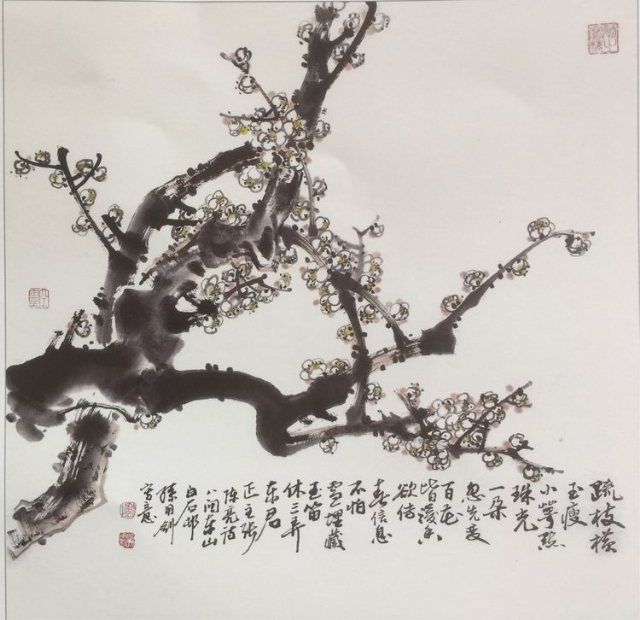 疏枝横
玉瘦
小萼點
珠光
一朵
忽先变
百花
皆後香
欲传
春信息
不怕
雪埋藏
玉笛
休三弄
东君
正主张
陈亮诗
八闽东山
白石邨
写意